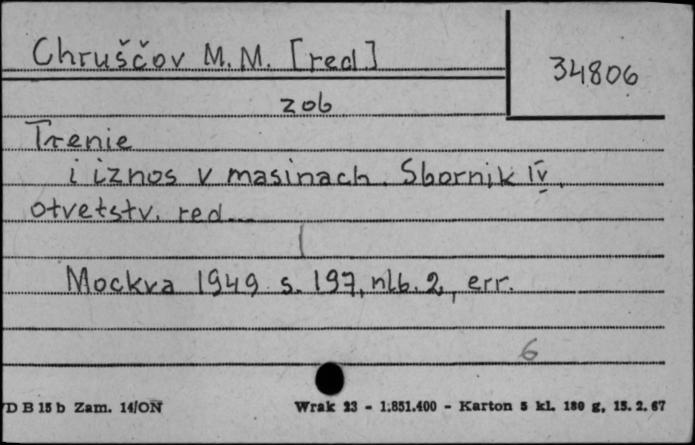 Chruščov M.M. [red]
34806
zob
Trenie
i iznos v masinach. Sbornik IV.
otvetstv. red...
Mockva 1949 s. 197, nlb. 2, err.
6
D B 15 b Zam. 14/ON Wrak 23 - 1.851.400 - Karton 5 kl. 180 g, 15. 2. 67